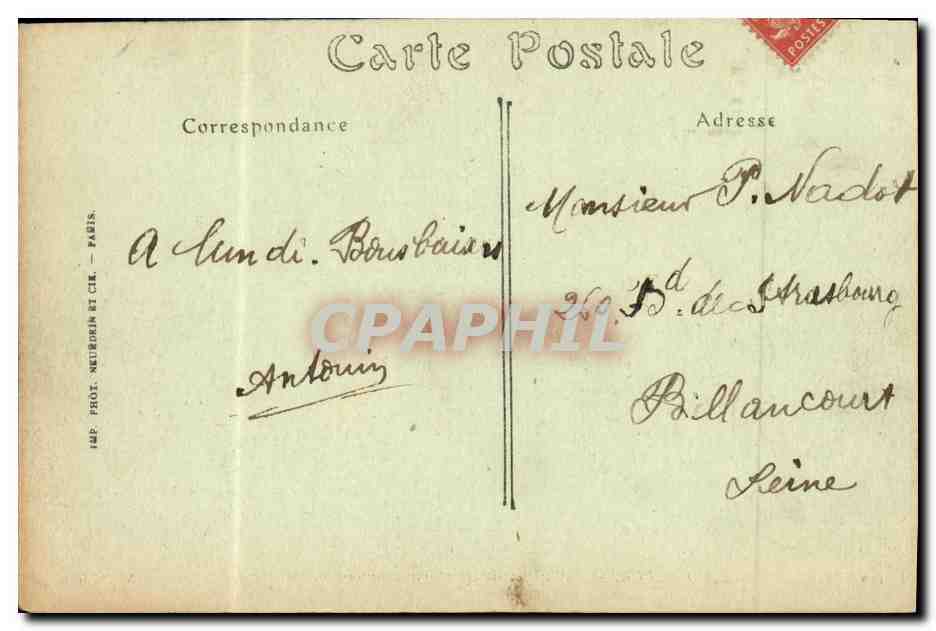 Carte Postale
POSTES
Correspondance
Adresse
A lundi. Bons baisers
Antonin
Monsieur P. Nadot
260. Bd. de Strasbourg
Billancourt
Seine
IMP. PHOT. NEURDEIN ET CIE. — PARIS.
CPAPHIL